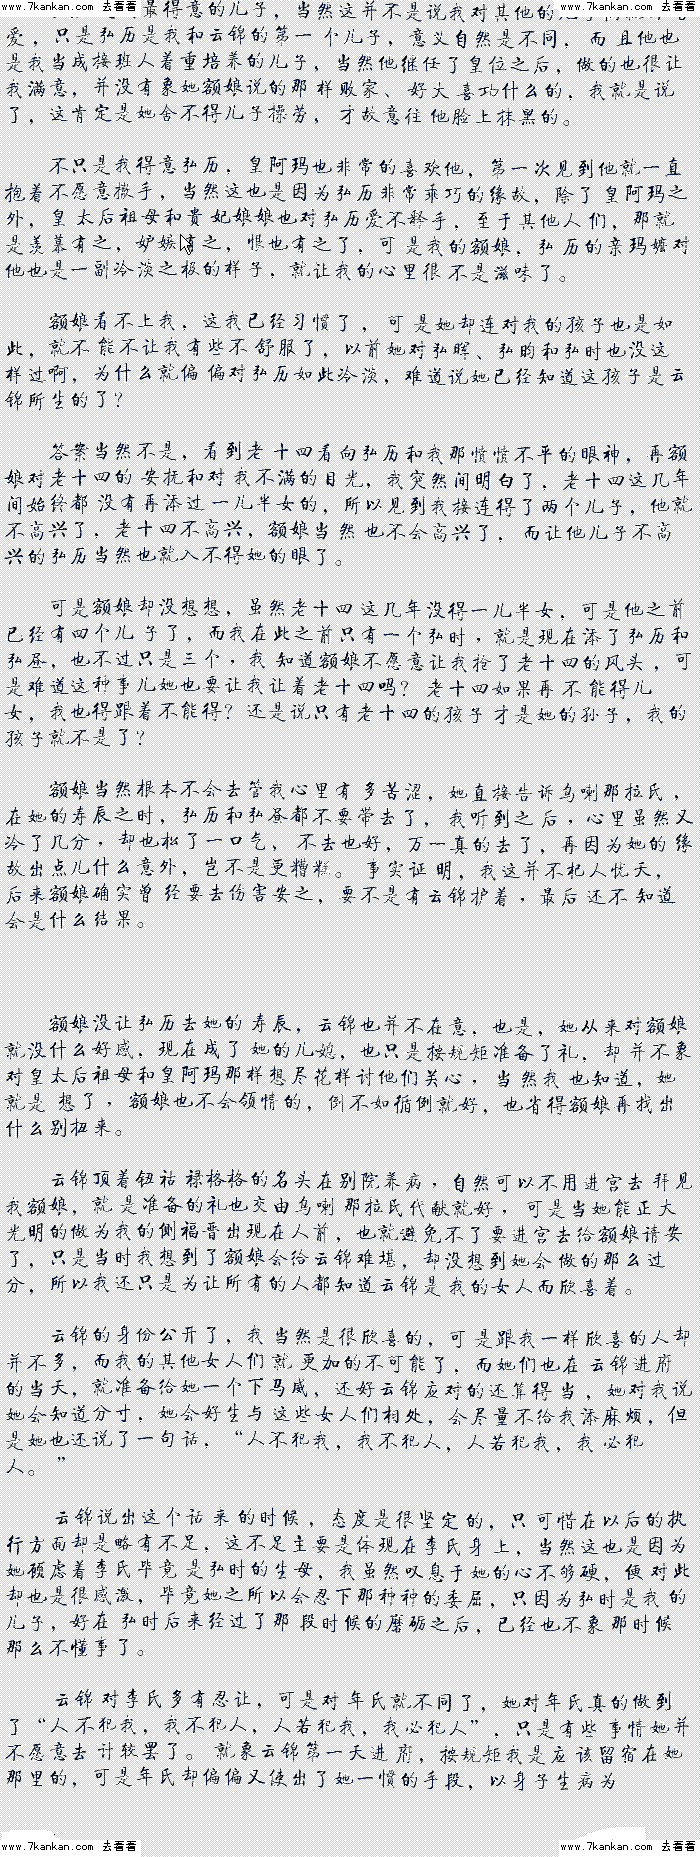 www.7kankan.com 去看看 www.7kankan.com 去看看
最得意的儿子，当然这并不是说我对其他的儿子
爱，只是弘历是我和云锦的第一个儿子，意义自然是不同，而且他也
是我当成接班人着重培养的儿子，当然他继任了皇位之后，做的也很让
我满意，并没有象她额娘说的那样败家、好大喜功什么的，我就是说
了，这肯定是她舍不得儿子操劳，才故意往他脸上抹黑的。
不只是我得意弘历，皇阿玛也非常的喜欢他，第一次见到他就一直
抱着不愿意撒手，当然这也是因为弘历非常乖巧的缘故，除了皇阿玛之
外，皇太后祖母和贵妃娘娘也对弘历爱不释手，至于其他人们，那就
是羡慕有之，妒嫉有之，恨也有之了，可是我的额娘，弘历的亲玛嬷对
他也是一副冷淡之极的样子，就让我的心里很不是滋味了。
额娘看不上我，这我已经习惯了，可是她却连对我的孩子也是如
此，就不能不让我有些不舒服了，以前她对弘晖、弘昀和弘时也没这
样过啊，为什么就偏偏对弘历如此冷淡，难道说她已经知道这孩子是云
锦所生的了？
答案当然不是，看到老十四看向弘历和我那愤愤不平的眼神，再额
娘对老十四的安抚和对我不满的目光，我突然间明白了，老十四这几年
间始终都没有再添过一儿半女的，所以见到我接连得了两个儿子，他就
不高兴了，老十四不高兴，额娘当然也不会高兴了，而让他儿子不高
兴的弘历当然也就入不得她的眼了。
可是额娘却没想想，虽然老十四这几年没得一儿半女，可是他之前
已经有四个儿子了，而我在此之前只有一个弘时，就是现在添了弘历和
弘昼，也不过只是三个，我知道额娘不愿意让我抢了老十四的风头，可
是难道这种事儿她也要让我让着老十四吗？老十四如果再不能得儿
女，我也得跟着不能得？还是说只有老十四的孩子才是她的孙子，我的
孩子就不是了？
额娘当然根本不会去管我心里有多苦涩，她直接告诉乌喇那拉氏，
在她的寿辰之时，弘历和弘昼都不要带去了，我听到之后，心里虽然又
冷了几分，却也松了一口气，不去也好，万一真的去了，再因为她的缘
故出点儿什么意外，岂不是更糟糕。事实证明，我这并不杞人忧天，
后来额娘确实曾经要去伤害安之，要不是有云锦护着，最后还不知道
会是什么结果。
额娘没让弘历去她的寿辰，云锦也并不在意，也是，她从来对额娘
就没什么好感，现在成了她的儿媳，也只是按规矩准备了礼，却并不象
对皇太后祖母和皇阿玛那样想尽花样讨他们关心，当然我也知道，她
就是想了，额娘也不会领情的，倒不如循例就好，也省得额娘再找出
什么别扭来。
云锦顶着钮祜禄格格的名头在别院养病，自然可以不用进宫去拜见
我额娘，就是准备的礼也交由乌喇那拉氏代献就好，可是当她能正大
光明的做为我的侧福晋出现在人前，也就避免不了要进宫去给额娘请安
了，只是当时我想到了额娘会给云锦难堪，却没想到她会做的那么过
分，所以我还只是为让所有的人都知道云锦是我的女人而欣喜着。
云锦的身份公开了，我当然是很欣喜的，可是跟我一样欣喜的人却
并不多，而我的其他女人们就更加的不可能了，而她们也在云锦进府
的当天，就准备给她一个下马威，还好云锦应对的还算得当，她对我说
她会知道分寸，她会好生与这些女人们相处，会尽量不给我添麻烦，但
是她也还说了一句话，“人不犯我，我不犯人，人若犯我，我必犯
人。”
云锦说出这个话来的时候，态度是很坚定的，只可惜在以后的执
行方面却是略有不足，这不足主要是体现在李氏身上，当然这也是因为
她顾虑着李氏毕竟是弘时的生母，我虽然叹息于她的心不够硬，便对此
却也是很感激，毕竟她之所以会忍下那种种的委屈，只因为弘时是我的
儿子，好在弘时后来经过了那段时候的磨砺之后，已经也不象那时候
那么不懂事了。
云锦对李氏多有忍让，可是对年氏就不同了，她对年氏真的做到
了“人不犯我，我不犯人，人若犯我，我必犯人”，只是有些事情她并
不愿意去计较罢了。就象云锦第一天进府，按规矩我是应该留宿在她
那里的，可是年氏却偏偏又使出了她一惯的手段，以身子生病为
www.7kankan.com 去看看 www.7kankan.com 去看看